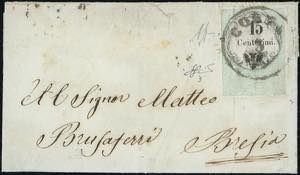 15
Centesimi.
Al Signor Matteo
Brusaferri
Brescia